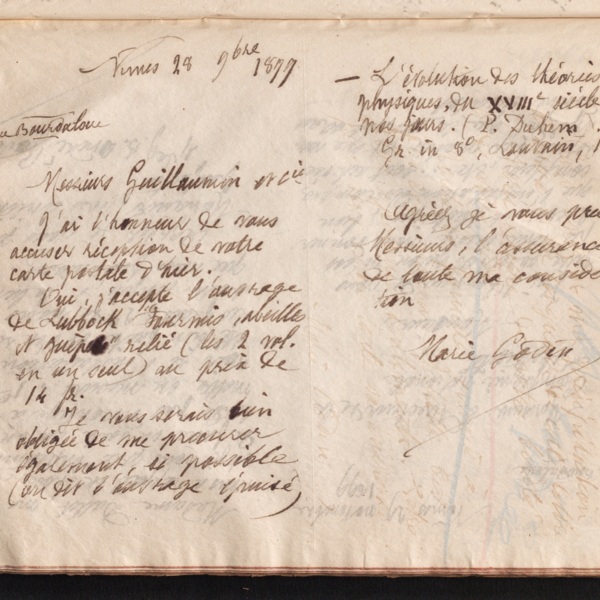 Nimes 28 9bre 1899
Bourdaloue
Messieurs Guillaumin et cie
J'ai l'honneur de vous
accuser réception de votre
carte postale d'hier.
Oui, j'accepte l'ouvrage
de Lubbock "Fourmis, abeilles
et guêpes" relié (les 2 vol.
en un seul) au prix de
14 fr.
Je vous serais bien
obligée de me procurer
également, si possible
(on dit l'ouvrage épuisé)
— L'évolution des théories
physiques, du XVIIIe siècle
nos jours. (P. Duhem)
Gr. in 8°, Louvain, 1
Agréez je vous
Messieurs, l'assurance
de toute ma considé
tion
Marie Godin